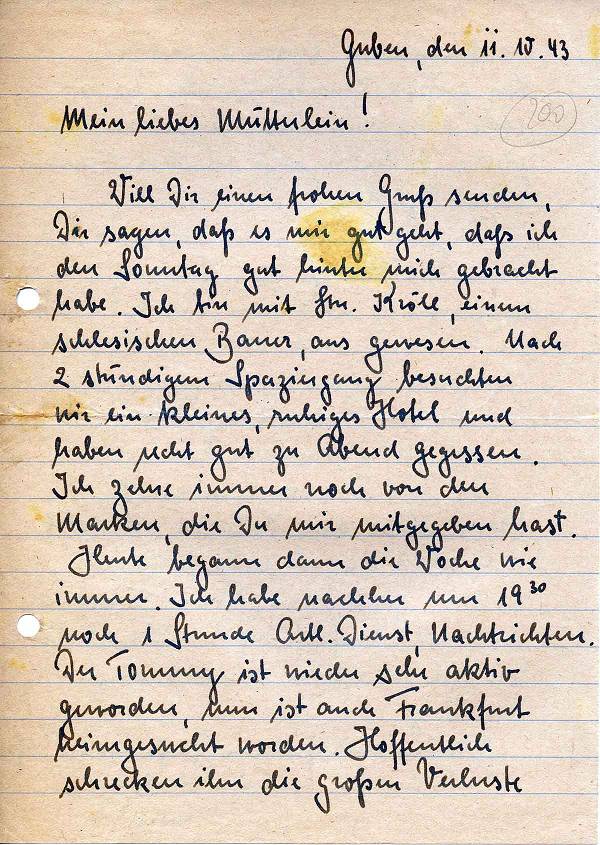 Guben, den 11. 10. 43
200
Mein liebes Mütterlein!
Will Dir einen frohen Gruß senden,
Dir sagen, daß es mir gut geht, daß ich
den Sonntag gut hinter mich gebracht
habe. Ich bin mit Kröll, einem
schlesischen Bauer, aus gewesen. Nach
2 stündigem Spaziergang besuchten
wir ein kleines, ruhiges Hotel und
haben recht gut zu Abend gegessen.
Ich zehre immer noch von den
Marken, die Du mir mitgegeben hast.
Heute begann dann die Woche wie
immer. Ich habe nachher um 19 30
noch 1 Stunde Artl. Dienst, Nachrichten.
Der Tommy ist wieder sehr aktiv
geworden, nun ist auch Frankfurt
heimgesucht worden. Hoffentlich
schrecken ihn die großen Verluste